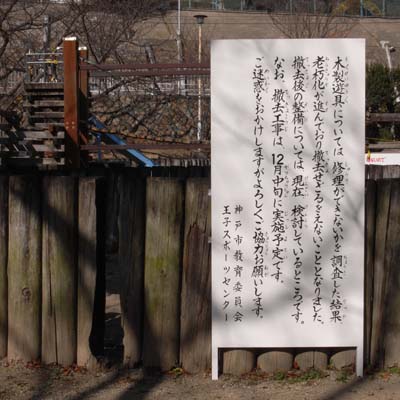 木製遊具については、修理ができないかを調査した結果、
老朽化が進んでおり撤去せざるをえないこととなりました。
撤去後の整備については、現在、検討しているところです。
なお、撤去工事は、12月中旬に実施予定です。
ご迷惑をおかけしますがよろしくご協力お願いします。
神戸市教育委員会
王子スポーツセンター